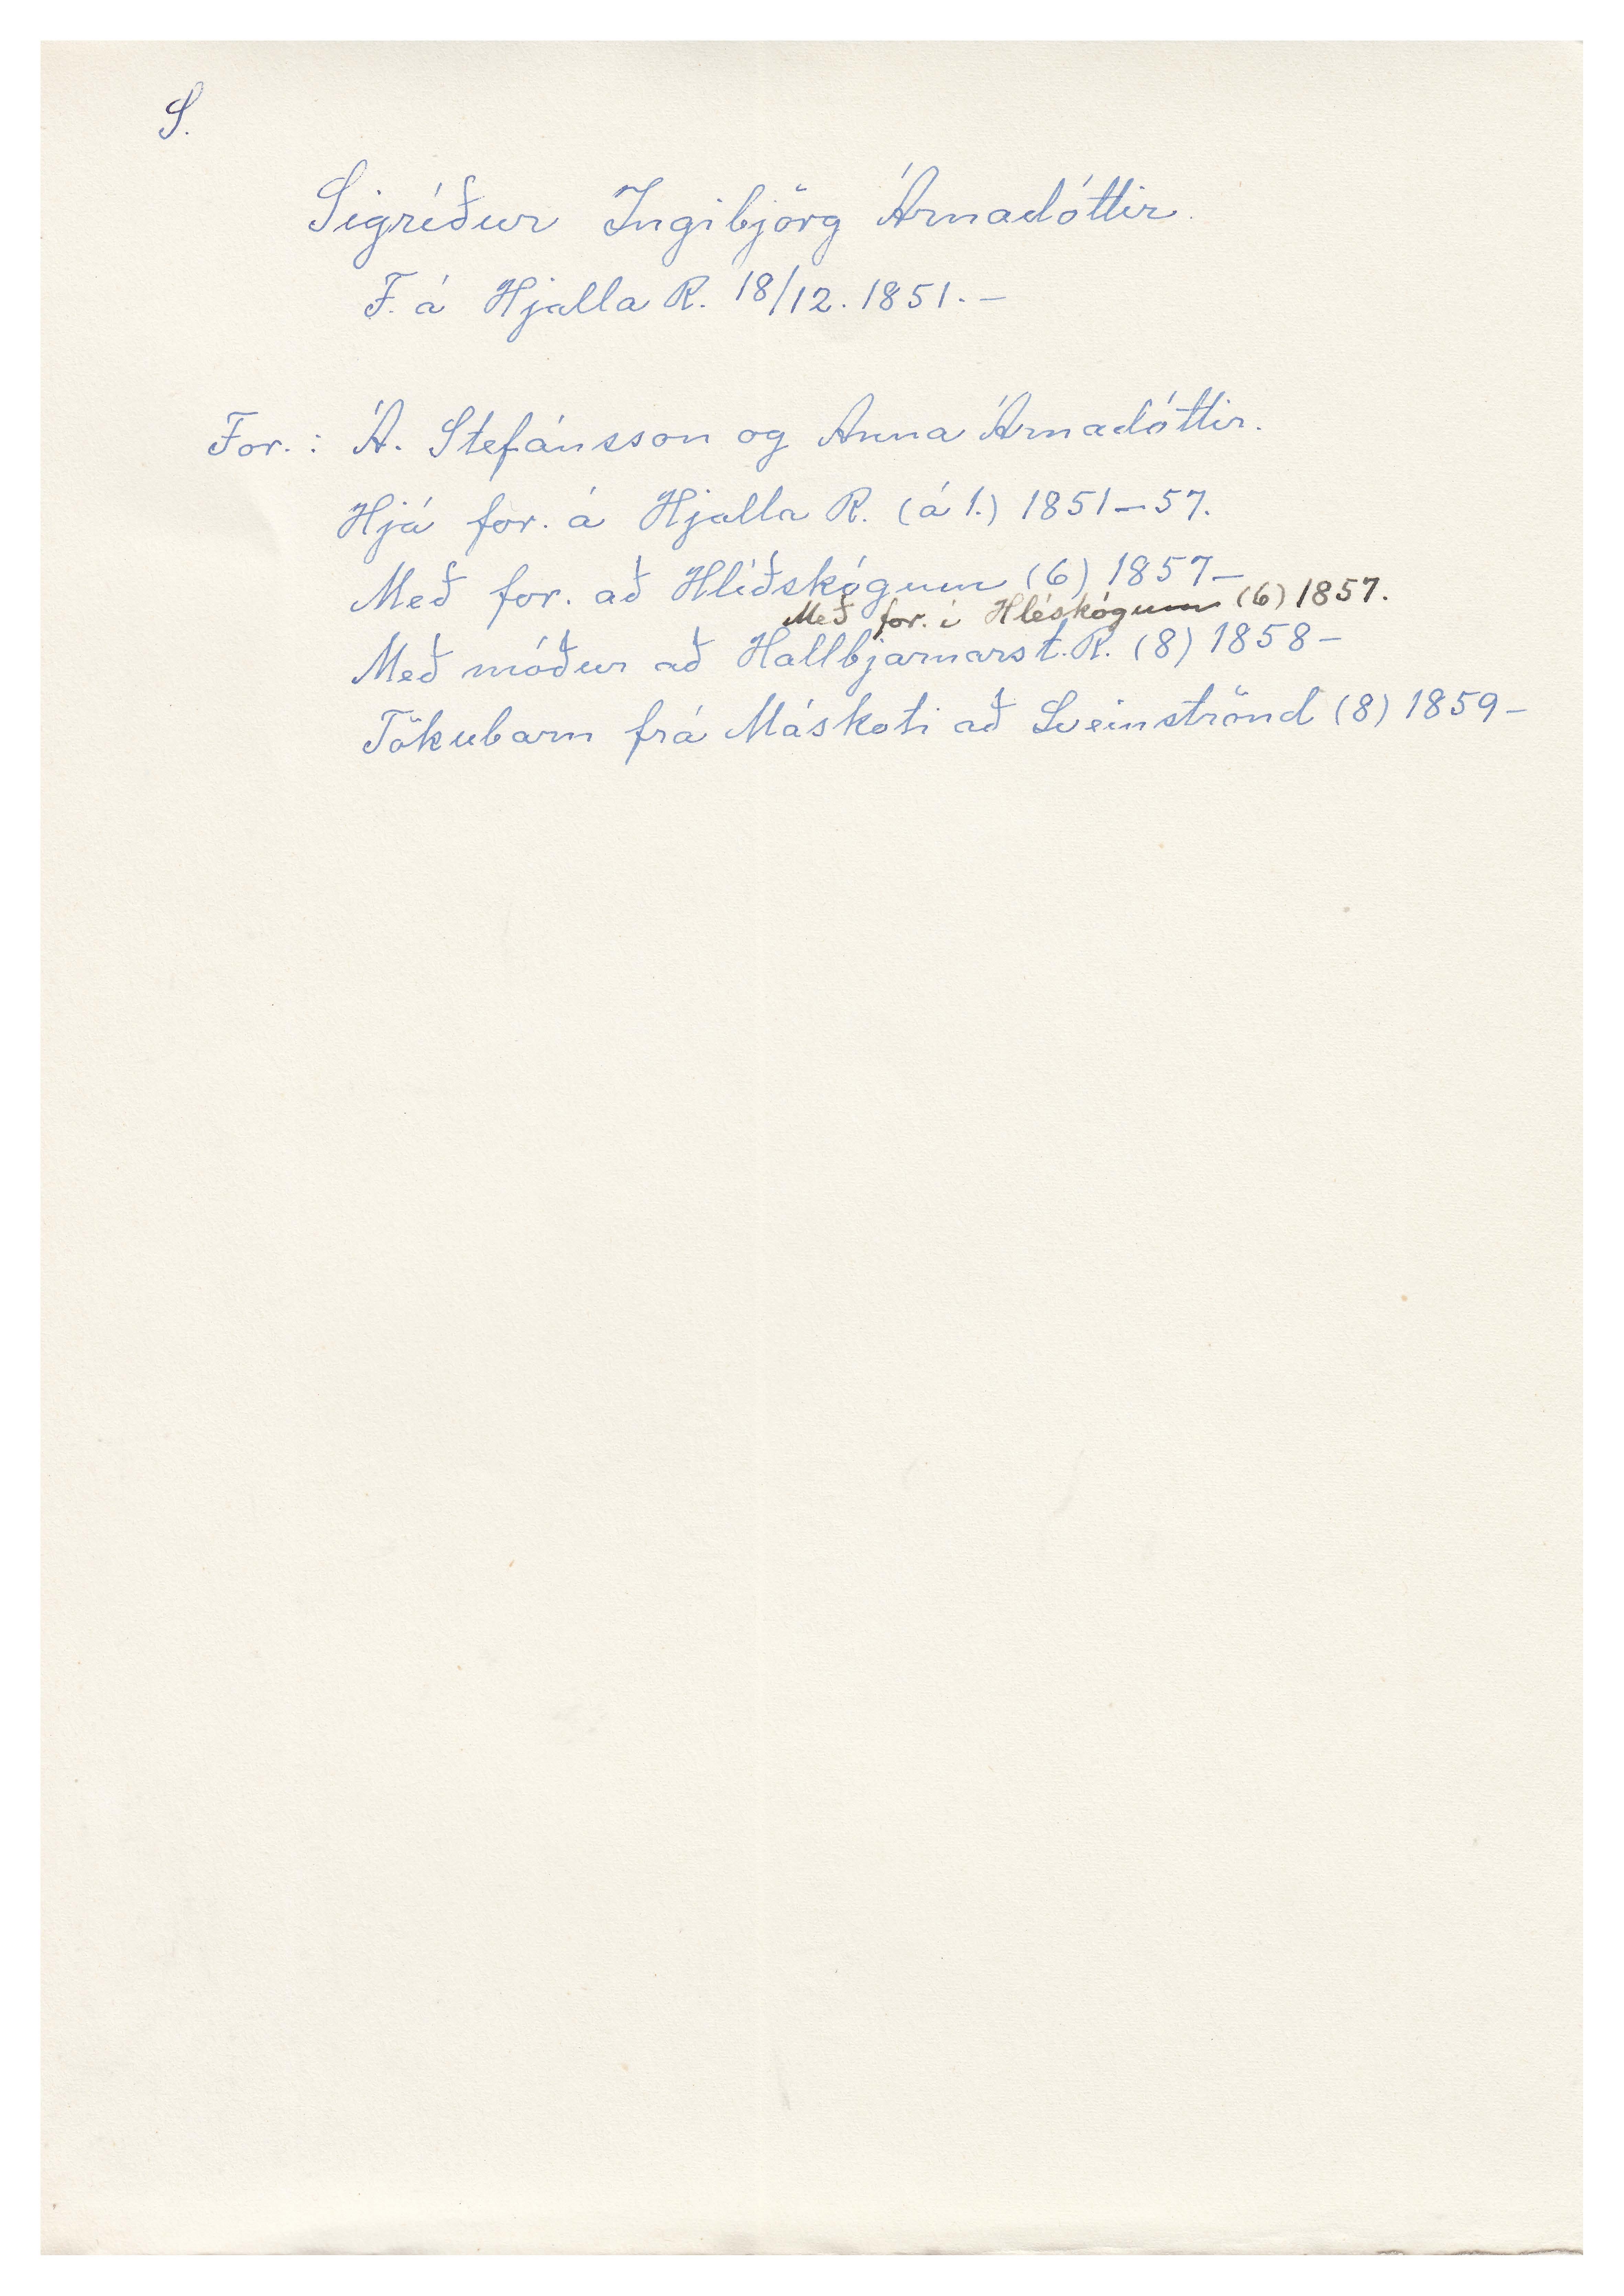 S.
Sigríður Ingibjörg Árnadóttir.
F. á Hjalla R. 18/12. 1851. –
For. : Á. Stefánsson og Anna Árnadóttir.
Hjá for. á Hjalla R. (á 1.) 1851–57.
Með for. að Hlíðskógum (6) 1857–
Með for. í Hléskógum (6) 1857.
Með móður að Hallbjarnarst. R. (8) 1858–
Tökubarn frá Máskoti að Sveinströnd (8) 1859–